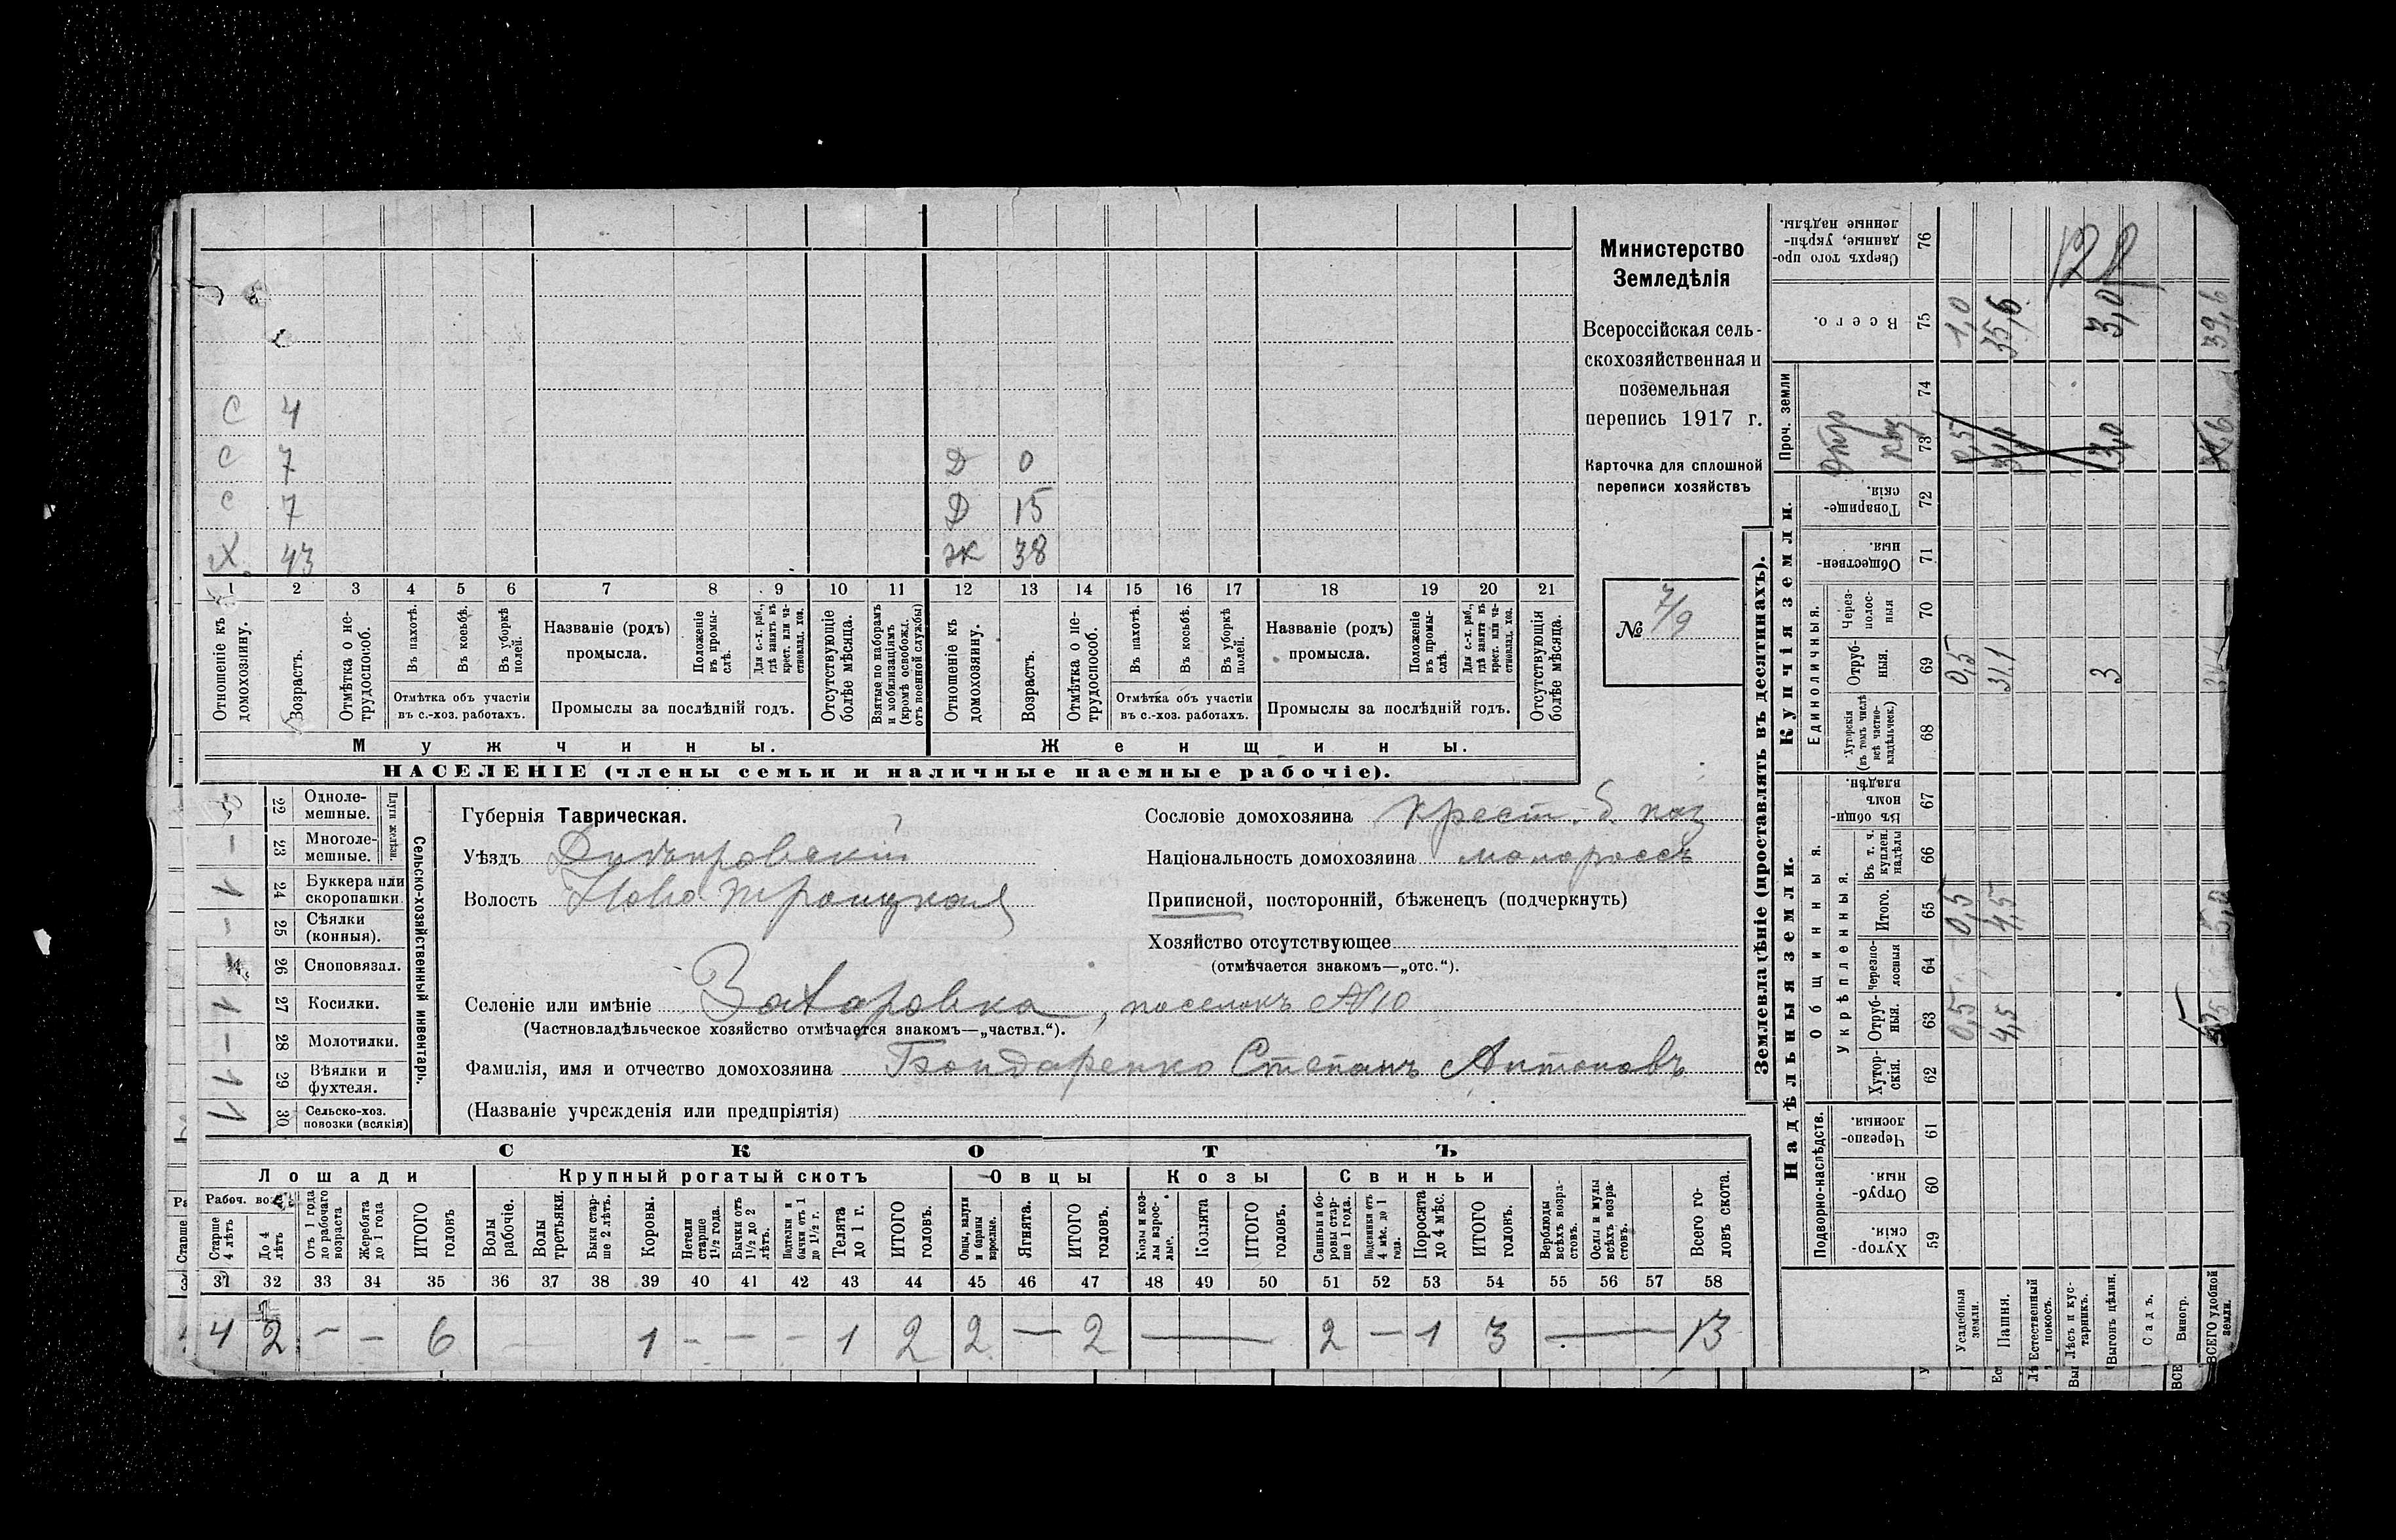 С 4
С 7 Д 0
С 7 Д 15
Х. 43 ж 38
1 2 3 4 5 6 7 8 9 10 11 12 13 14 15 16 17 18 19 20 21
Отношеніе къ домохозяину.
Возрастъ.
Отмѣтка о нетрудоспособ.
Въ пахотѣ.
Въ косьбѣ.
Въ уборкѣ полей.
Отмѣтка объ участіи
въ с.-хоз. работахъ.
Названіе (родъ)
промысла.
Положеніе въ промыслѣ.
Для с.-х. раб., гдѣ занятъ въ крест. или частновлад. хоз.
Промыслы за послѣдній годъ.
Отсутствующіе болѣе мѣсяца.
Взятые по наборамъ и мобилизаціямъ (кромѣ освобожд. отъ военной службы)
Отношеніе къ домохозяину.
Возрастъ.
Отмѣтка о нетрудоспособ.
Въ пахотѣ.
Въ косьбѣ.
Въ уборкѣ полей.
Отмѣтка объ участіи
въ с.-хоз. работахъ.
Названіе (родъ)
промысла.
Положеніе въ промыслѣ.
Для с.-х. раб., гдѣ занята въ крест. или частновлад. хоз.
Промыслы за послѣдній годъ.
Отсутствующія болѣе мѣсяца.
Мужчины. Женщины.
НАСЕЛЕНІЕ (члены семьи и наличные наемные рабочіе).
Министерство
Земледѣлія
Всероссійская сель-
скохозяйственная и
поземельная
перепись 1917 г.
Карточка для сплошной
переписи хозяйствъ
№ 7/9
Сельско-хозяйственный инвентарь.
Плуги желѣзн.
22 Одноле-
мешные.
– 23 Многоле-
мешные.
1 24 Буккера или
скоропашки.
– 25 Сѣялки
(конныя).
26 Сноповязал.
1 27 Косилки.
– 28 Молотилки.
1 29 Вѣялки и
фухтеля.
1 30 Сельско-хоз.
повозки (всякія)
Губернія Таврическая.
Уѣздъ Днѣпровскій
Волость Ново Троицкая
Сословіе домохозяина крест. б.
Національность домохозяина малороссъ
Приписной, посторонній, бѣженецъ (подчеркнуть)
Хозяйство отсутствующее
(отмѣчается знакомъ—„отс.“).
Селеніе или имѣніе Захаровка, поселокъ №10
(Частновладѣльческое хозяйство отмѣчается знакомъ—„частвл.“).
Фамилія, имя и отчество домохозяина Бондаренко Степанъ Антоновъ
(Названіе учрежденія или предпріятія)
СКОТЪ
Лошади Крупный рогатый скотъ Овцы Козы Свиньи
Рабоч. возр.
Старше 4 лѣтъ
До 4 лѣтъ
Отъ 1 года до рабочаго возраста
Жеребята до 1 года
ИТОГО головъ
Волы рабочіе.
Волы третьяки.
Быки старше 2 лѣтъ.
Коровы.
Нетели старше 1½ года.
Бычки отъ 1½ до 2 лѣтъ.
Подтелки и бычки отъ 1 до 1½ г.
Телята до 1 г.
ИТОГО головъ.
Овцы, валухи и бараны взрослые.
Ягнята.
ИТОГО головъ.
Козы и козлы взрослые.
Козлята
ИТОГО головъ.
Свиньи и боровы старше 1 года.
Подсвинки отъ 4 мѣс. до 1 года.
Поросята до 4 мѣс.
ИТОГО головъ.
Верблюды всѣхъ возрастовъ.
Ослы и мулы всѣхъ возрастовъ.
Всего головъ скота.
31 32 33 34 35 36 37 38 39 40 41 42 43 44 45 46 47 48 49 50 51 52 53 54 55 56 57 58
4 2 – – 6 1 – – – 1 2 2 – 2 — 2 – 1 3 — 13
Землевладѣніе (проставлять въ десятинахъ).
Надѣльныя земли. Купчія земли. Проч. земли
Подворно-наслѣдств.
Общинныя.
Укрѣпленныя.
Единоличныя.
Хуторскія. 59
Отрубныя. 60
Черезполосныя. 61
Хуторскія. 62
Отрубныя. 63 0,5 4,5
Черезполосныя 64
Итого. 65 0,5 4,5 5,0
Въ т. ч. куплен. надѣлы 66
Въ общинномъ владѣн. 67
Хуторскія (въ томъ числѣ всѣ частновладѣльческ.) 68
Отрубныя. 69 0,5 311 3
Черезполосныя 70
Общественныя. 71
Товарищескія. 72
73 0,5 3,0
74
Всего. 75 1,0 35,6 3,0 39,6
Сверхъ того проданные, укрѣпленные надѣлы. 76
Усадебныя земли.
Пашня.
Естественный покосъ.
Лѣсъ и кустарникъ.
Выгонъ цѣлин.
Садъ.
Виногр.
ВСЕГО удобной земли.